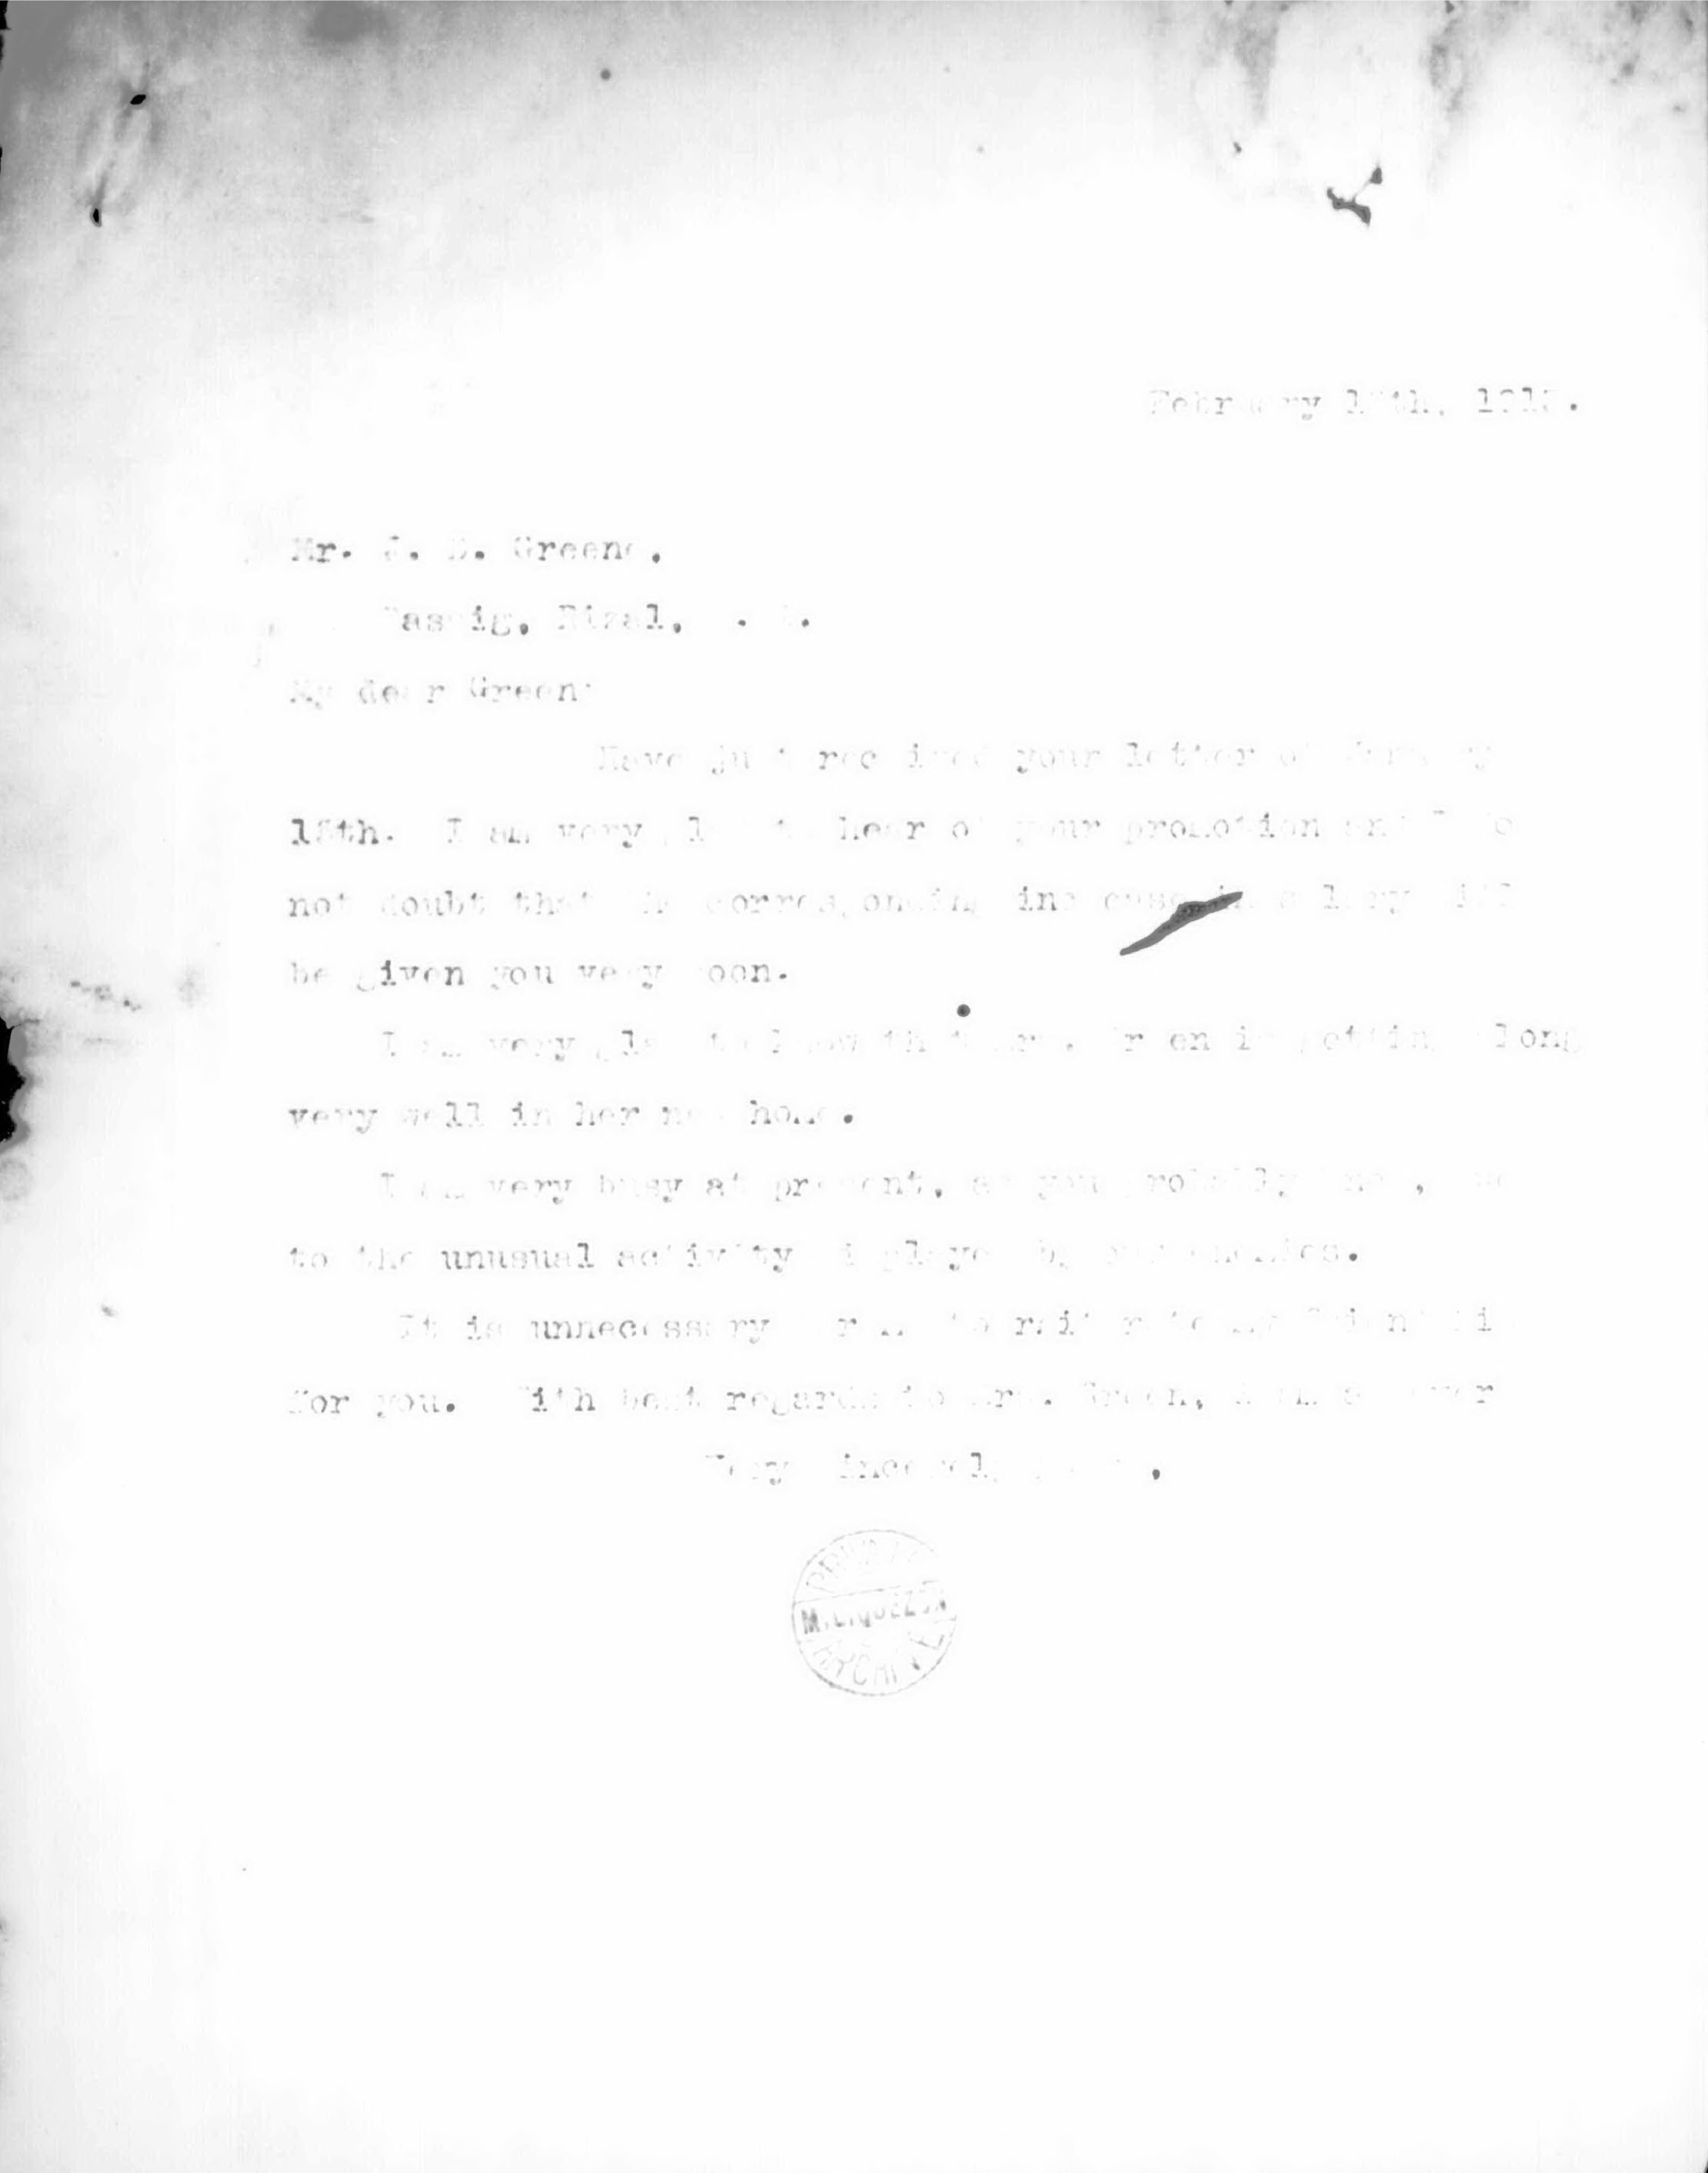 February
Mr. Green
Rizal,
My dear Green
Have just received your letter of January
15th. I am very glad to hear of your promotion and I do
not doubt that the corresponding increase in salary will
be given you very soon.
I am very glad to know that Mrs. Green is getting along
very well in her new home.
I am very busy at present, as you probably know, due
to the unusual activity displayed by our enemies.
It is unnecessary for me to
for you. With best regards to Mrs. Green, I am as ever
Very sincerely
PRIVATE
M.L.QUEZON
ARCHIVE